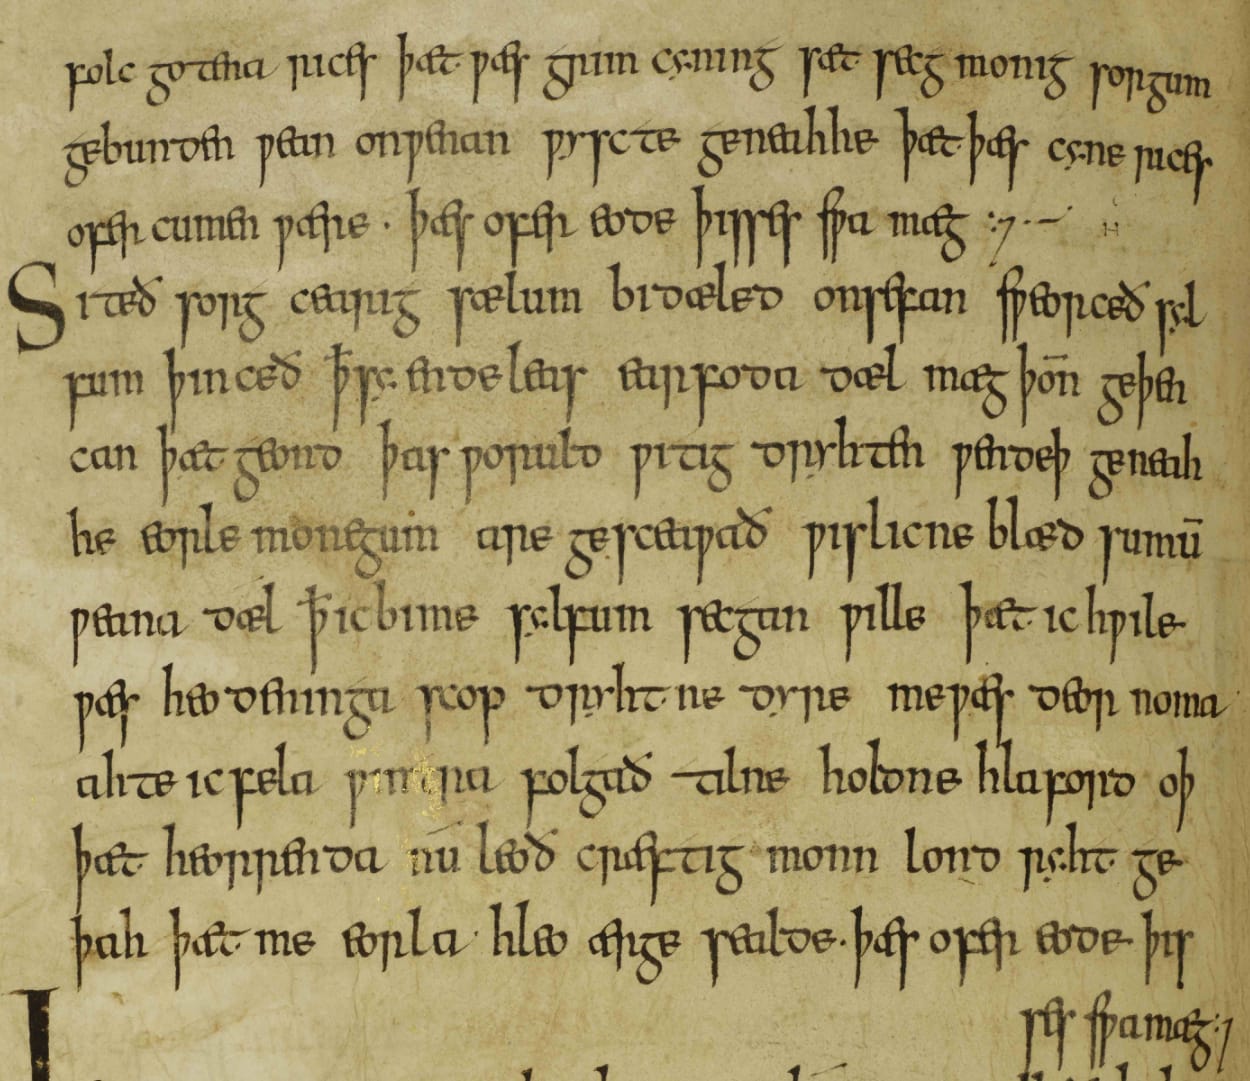 folc gotena rices þæt wæs grim cẏning sæt secg monig sorgum
gebunden wean onwenan wyscte geneahhe þæt þæs cẏne rices
ofer cumen wære · þæs ofer eode þisses swa mæg :⁊
Siteð sorg cearig sælum bidæled onsefan sweorceð sẏl
fum þinceð ꝥ sẏ endeleas earfoda dæl mæg þon̄ geþen
can þæt geond þas woruld witig dryhten wendeþ geneah
he eorle monegum are gesceawað wislicne blæd sumū
weana dæl ꝥ ic bi me sẏlfum secgan wille þæt ic hwile
wæs heodeninga scop dryhtne dyre me wæs deor noma
ahte ic fela wintra folgað tilne holdne hlaford oþ
þæt heorrenda nū leoð cræftig monn lond rẏht ge
þah þæt me eorla hleo ær ge sealde · þæs ofer eode þis
ses swa mæg :⁊